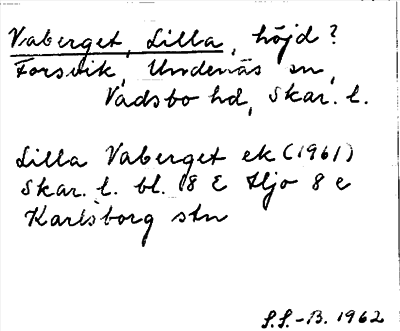 Vaberget, Lilla, höjd?
Forsvik, Undenäs sn,
Vadsbo hd, Skar. l.
Lilla Vaberget ek (1961)
Skar. l. bl. 8 E Hjo 8 e
Karlsborg stn
S.S.-B. 1962